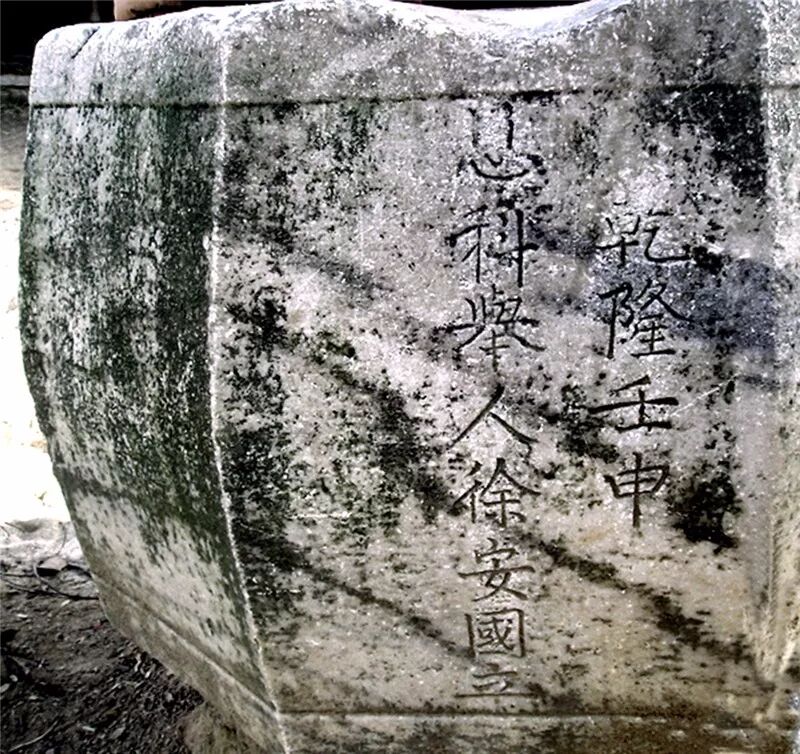 乾隆壬申
恩科舉人徐安國立